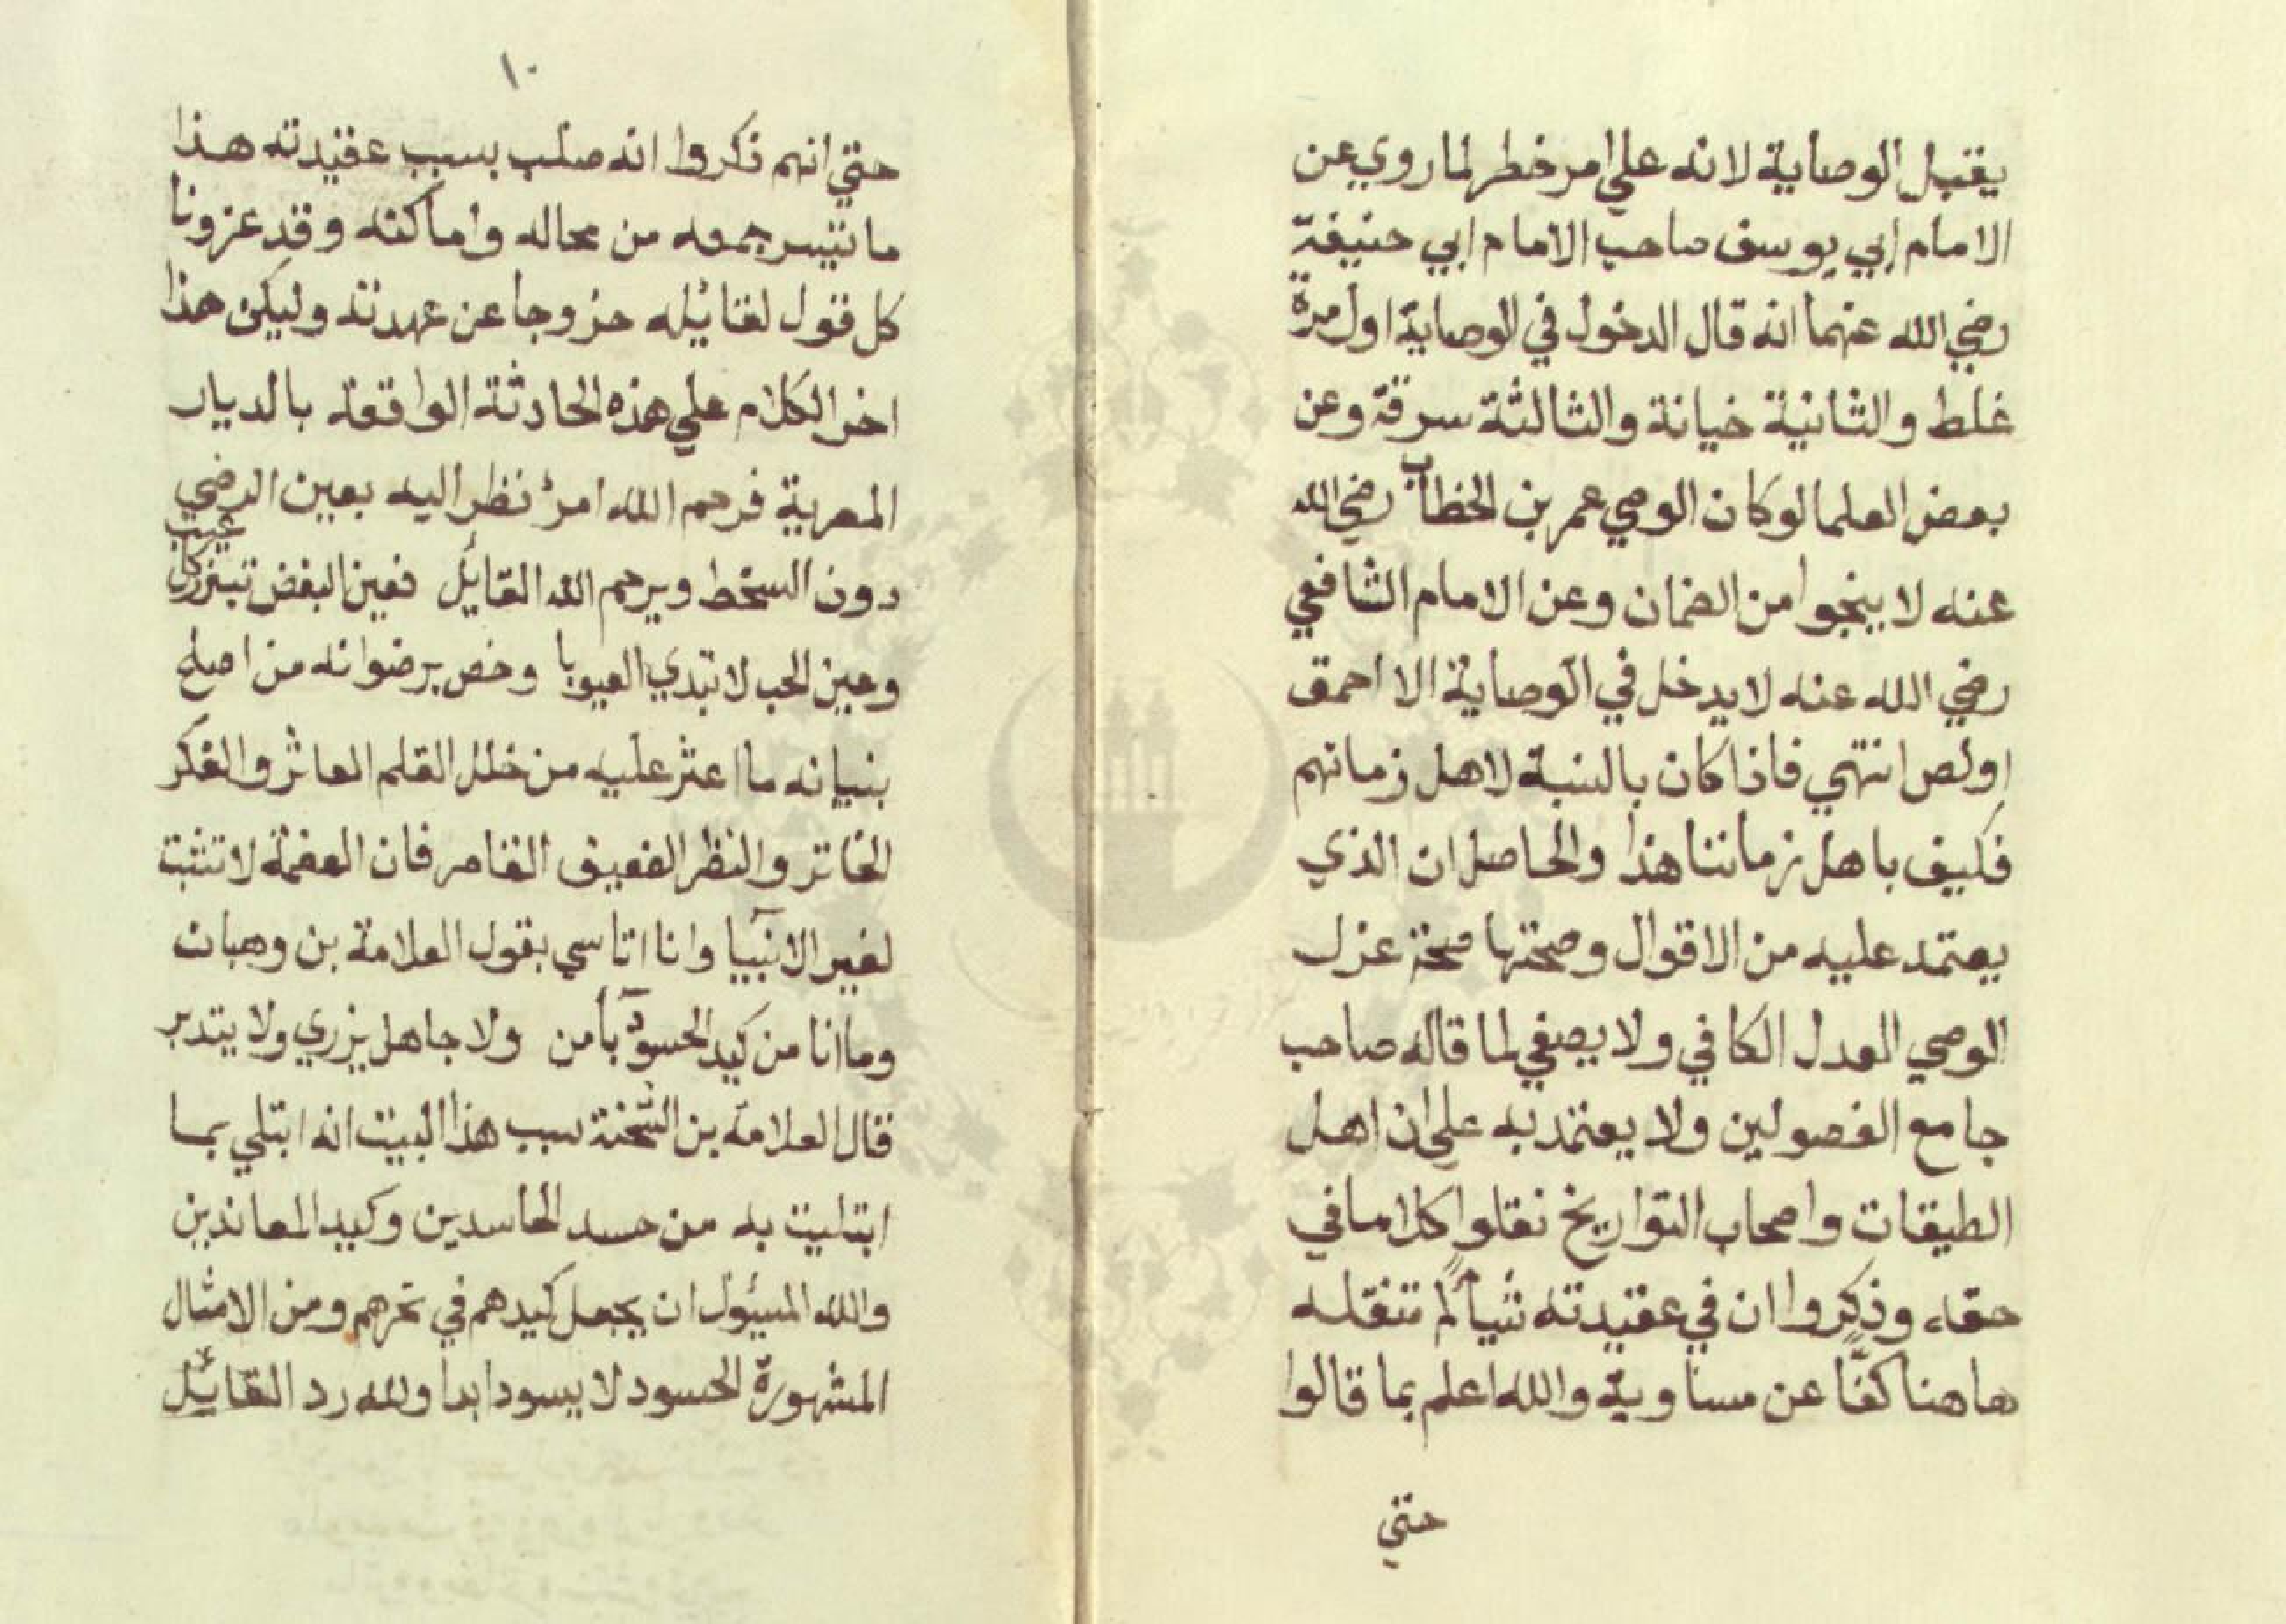 يقبل الوصاية لانه علي امر خطر لما روي عن
الامام ابي يوسف صاحب الامام ابي حنيفة
رضي الله عنهما انه قال الدخول في الوصاية اول مرة
غلط والثانية خيانة والثالثة سرقة وعن
بعض العلما لو كان الوصي عمر بن الخطاب رضي الله
عنه لا ينجوا من الضمان وعن الامام الشافعي
رضي الله عنه لا يدخل في الوصاية الا احمق
اولص انتهي فاذا كان بالنسبة لاهل زمانهم
فكيف باهل زماننا هذا والحاصل ان الذي
يعتمد عليه من الاقوال وصحتها صحة عزل
الوصي العدل الكافي ولا يصغي لما قاله صاحب
جامع الفصولين ولا يعتمد به علي ان اهل
الطبقات واصحاب التواريخ نقلوا كلاما في
حقه وذكروا ان في عقيدته شيأ لم تنقله
هاهنا كفّا عن مساويه والله اعلم بما قالوا
حتي
١٠
حتي انهم ذكروا انه صلب بسبب عقيدته هذا
ما تيسر جمعه من محاله واماكنه وقد عزونا
كل قول لقائله خروجا عن عهدته وليكن هذا
اخر الكلام علي هذه الحادثة الواقعة بالديار
المصرية فرحم الله امرؤ نظر اليه بعين الرضي
دون السخط ويرحم الله القايل فعين البغض تبرز كل عيب
وعين الحب لا تبدي العيوبا وخص برضوانه من اصلح
ببنيانه ما اعثر عليه من خلل القلم العاثر والفكر
الفاتر والنظر الضعيف القاصر فان العصمة لا تثبت
لغير الانبيآ وانا اتاسي بقول العلامة بن وهبان
وما انا من كيد الحسود بآمن ولا جاهل يزري ولا يتدبر
قال العلامة بن الشحنة سبب هذا البيت انه ابتلي بما
ابتليت به من حسد الحاسدين وكيد المعاندين
والله المسئول ان يجعل كيدهم في نحرهم ومن الامثال
المشهورة الحسود لا يسود ابدا ولله رد القائل